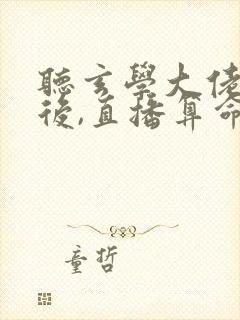 聽玄學大佬
後,直播算命
童哲